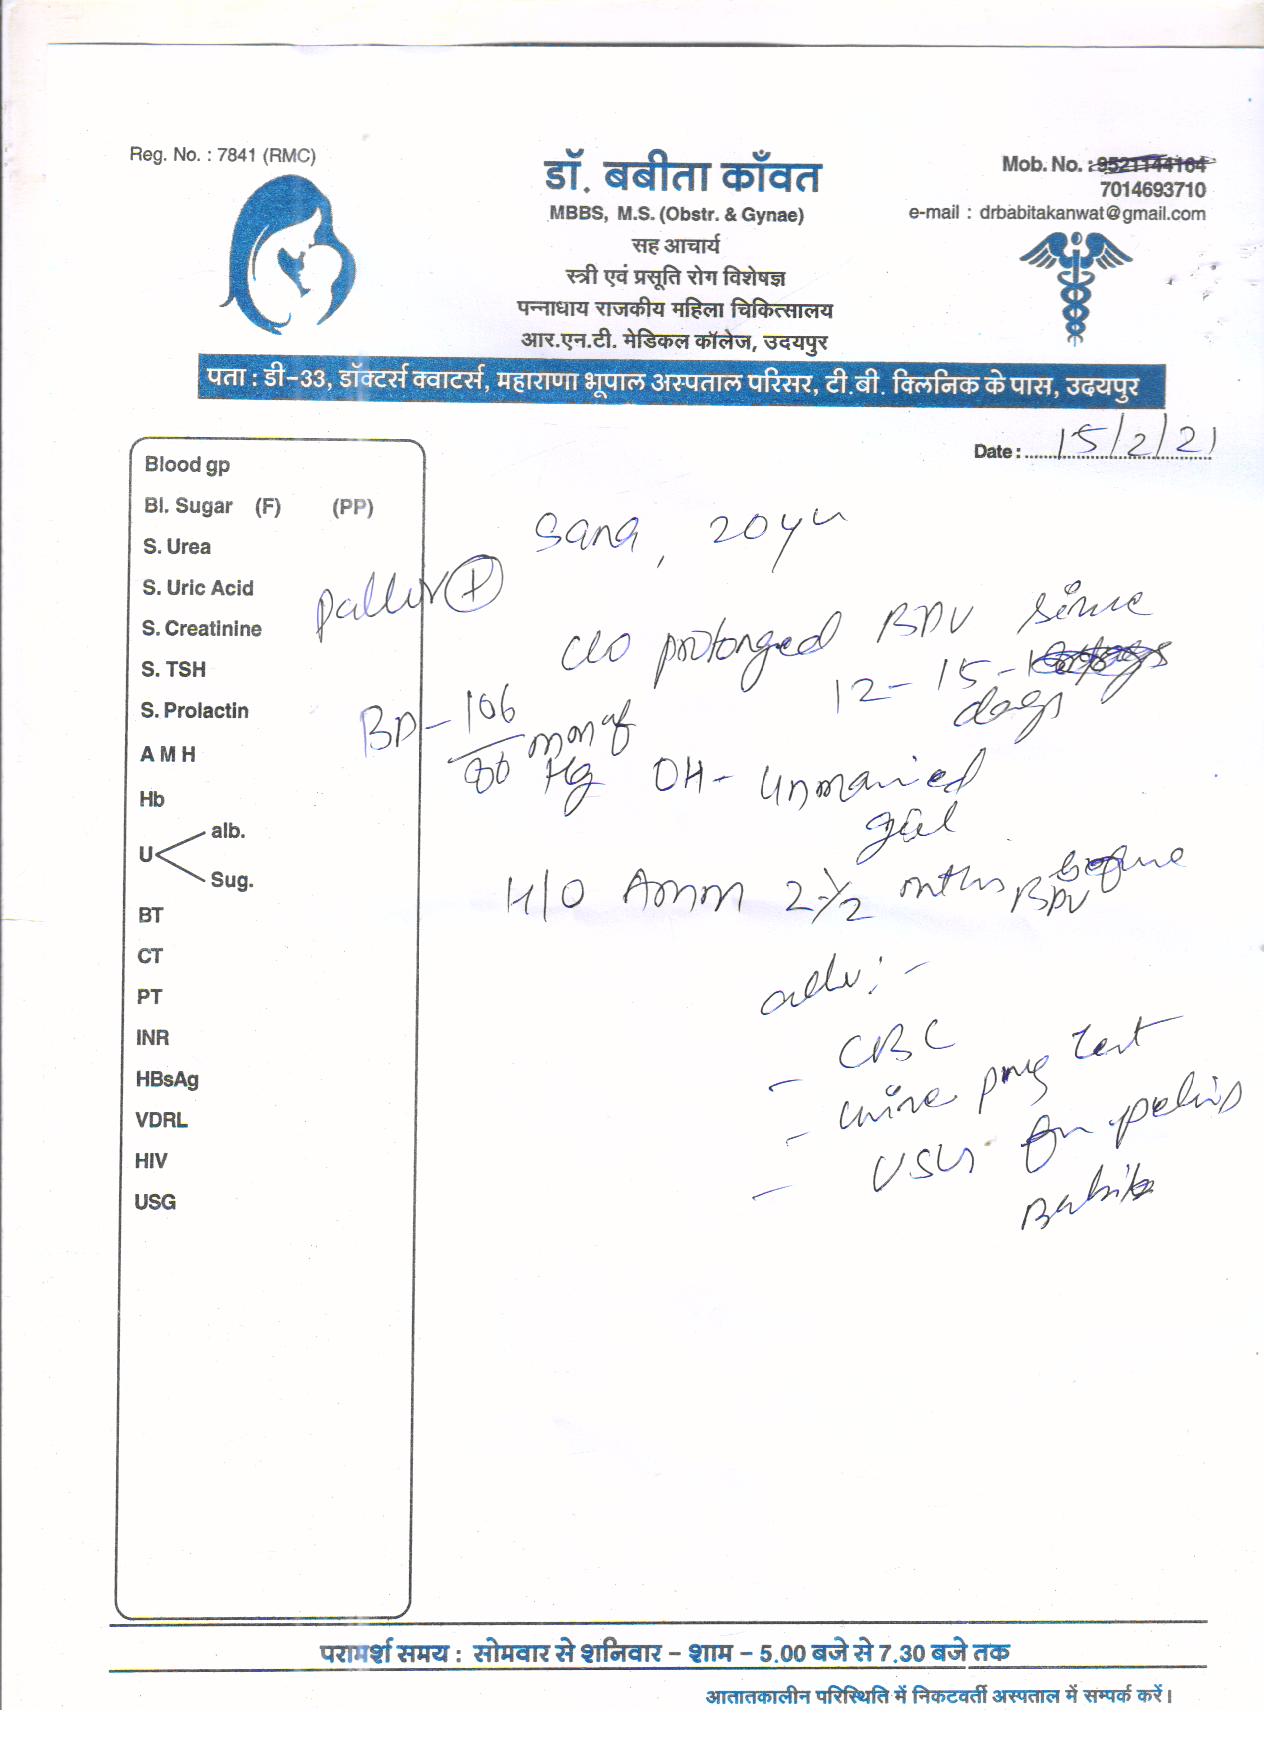 Reg. No. : 7841 (RMC)
डॉ. बबीता काँवत
MBBS, M.S. (Obstr. & Gynae)
सह आचार्य
स्त्री एवं प्रसूति रोग विशेषज्ञ
पन्नाधाय राजकीय महिला चिकित्सालय
आर.एन.टी. मेडिकल कॉलेज, उदयपुर
Mob. No. : 9521144104
7014693710
e-mail : drbabitakanwat@gmail.com
पता : डी-33, डॉक्टर्स क्वाटर्स, महाराणा भूपाल अस्पताल परिसर, टी.बी. क्लिनिक के पास, उदयपुर
Date : 15/2/21
Blood gp
Bl. Sugar (F) (PP)
S. Urea
S. Uric Acid
S. Creatinine
S. TSH
S. Prolactin
A M H
Hb
U alb.
Sug.
BT
CT
PT
INR
HBsAg
VDRL
HIV
USG
Sana, 20yr
pallor +
C/O prolonged BPV since
12-15-
days
BP - 106
mm of
Hg
OH - unmarried
girl
H/O Amm 2-1/2 months before
BPV
adv: -
- CBC
- urine preg test
- USG for pelvis
Babita
परामर्श समय : सोमवार से शनिवार - शाम - 5.00 बजे से 7.30 बजे तक
आतातकालीन परिस्थिति में निकटवर्ती अस्पताल में सम्पर्क करें।